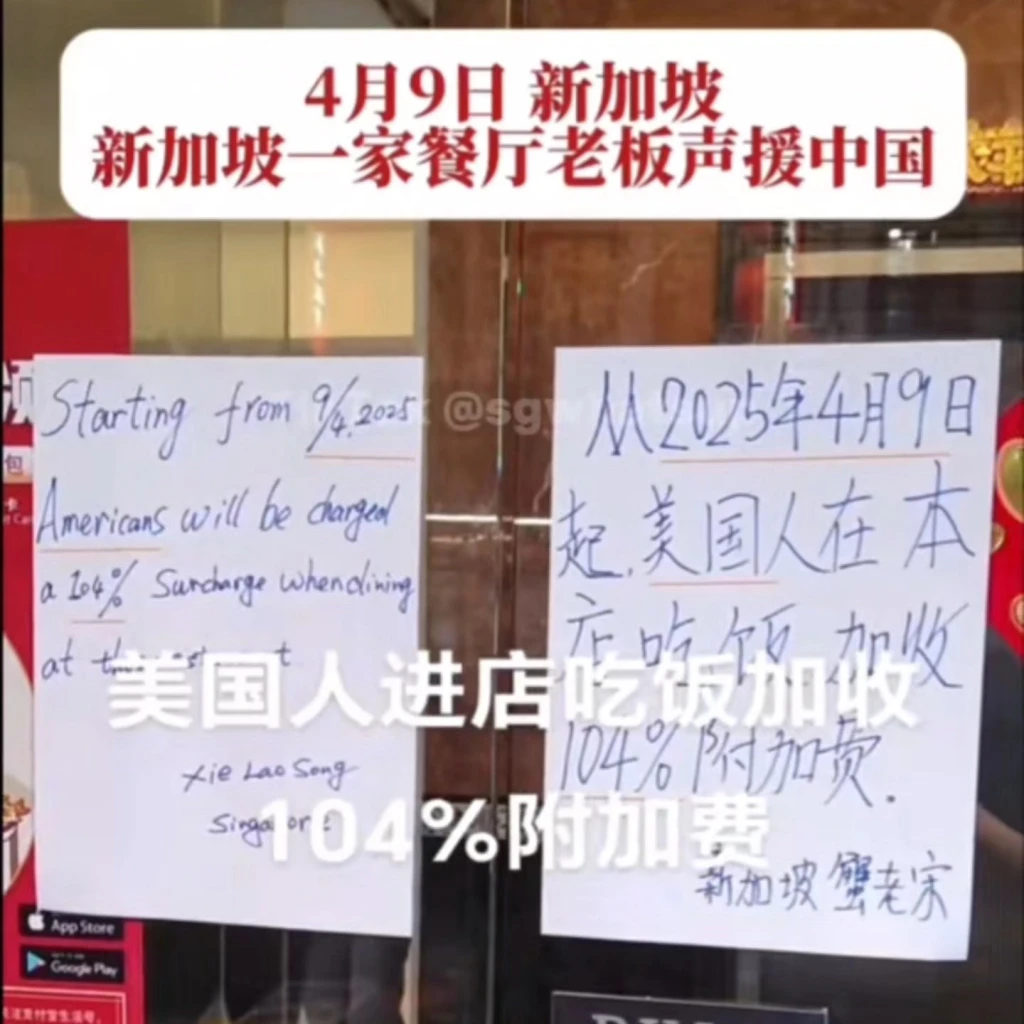 4月9日 新加坡
新加坡一家餐厅老板声援中国
Starting from 9/4.2025
Americans will be charged
a 104% Surcharge when dining
at
Xie Lao Song
从2025年4月9日
起.美国人在本
店吃饭加收
104%附加费.
新加坡 蟹老宋
美国人进店吃饭加收
104%附加费
App Store
Google Play